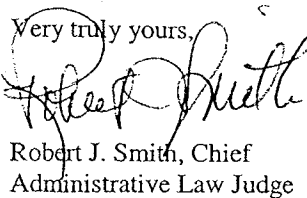 Very truly yours,
Robert Smith
Robert J. Smith, Chief
Administrative Law Judge